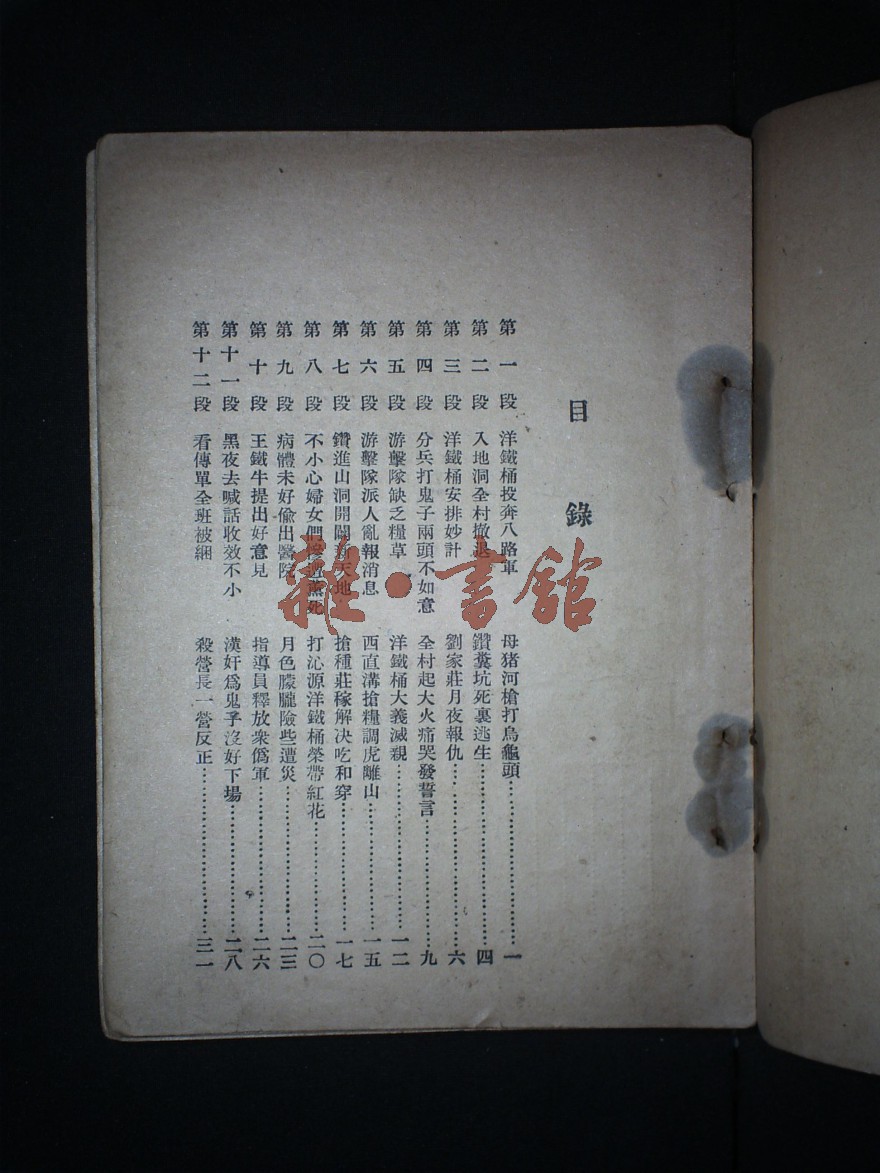 目錄
第一段 洋鐵桶投奔八路軍 母猪河槍打烏龜頭………一
第二段 入地洞全村撤退 鑽糞坑死裏逃生………四
第三段 洋鐵桶安排妙計 劉家莊月夜報仇………六
第四段 分兵打鬼子兩頭不如意 全村起大火痛哭發誓言………九
第五段 游擊隊缺乏糧草 洋鐵桶大義滅親………一二
第六段 游擊隊派人亂報消息 西直溝搶糧調虎離山………一五
第七段 鑽進山洞開闢新天地 搶種莊稼解决吃和穿………一七
第八段 不小心婦女們慘遭薰死 打沁源洋鐵桶榮帶紅花………二〇
第九段 病體未好偸出醫院 月色朦朧險些遭災………二三
第十段 王鐵牛提出好意見 指導員釋放衆僞軍………二六
第十一段 黑夜去喊話收效不小 漢奸爲鬼子沒好下場………二八
第十二段 看傳單全班被綑 殺營長一營反正………三一
雜·書舘